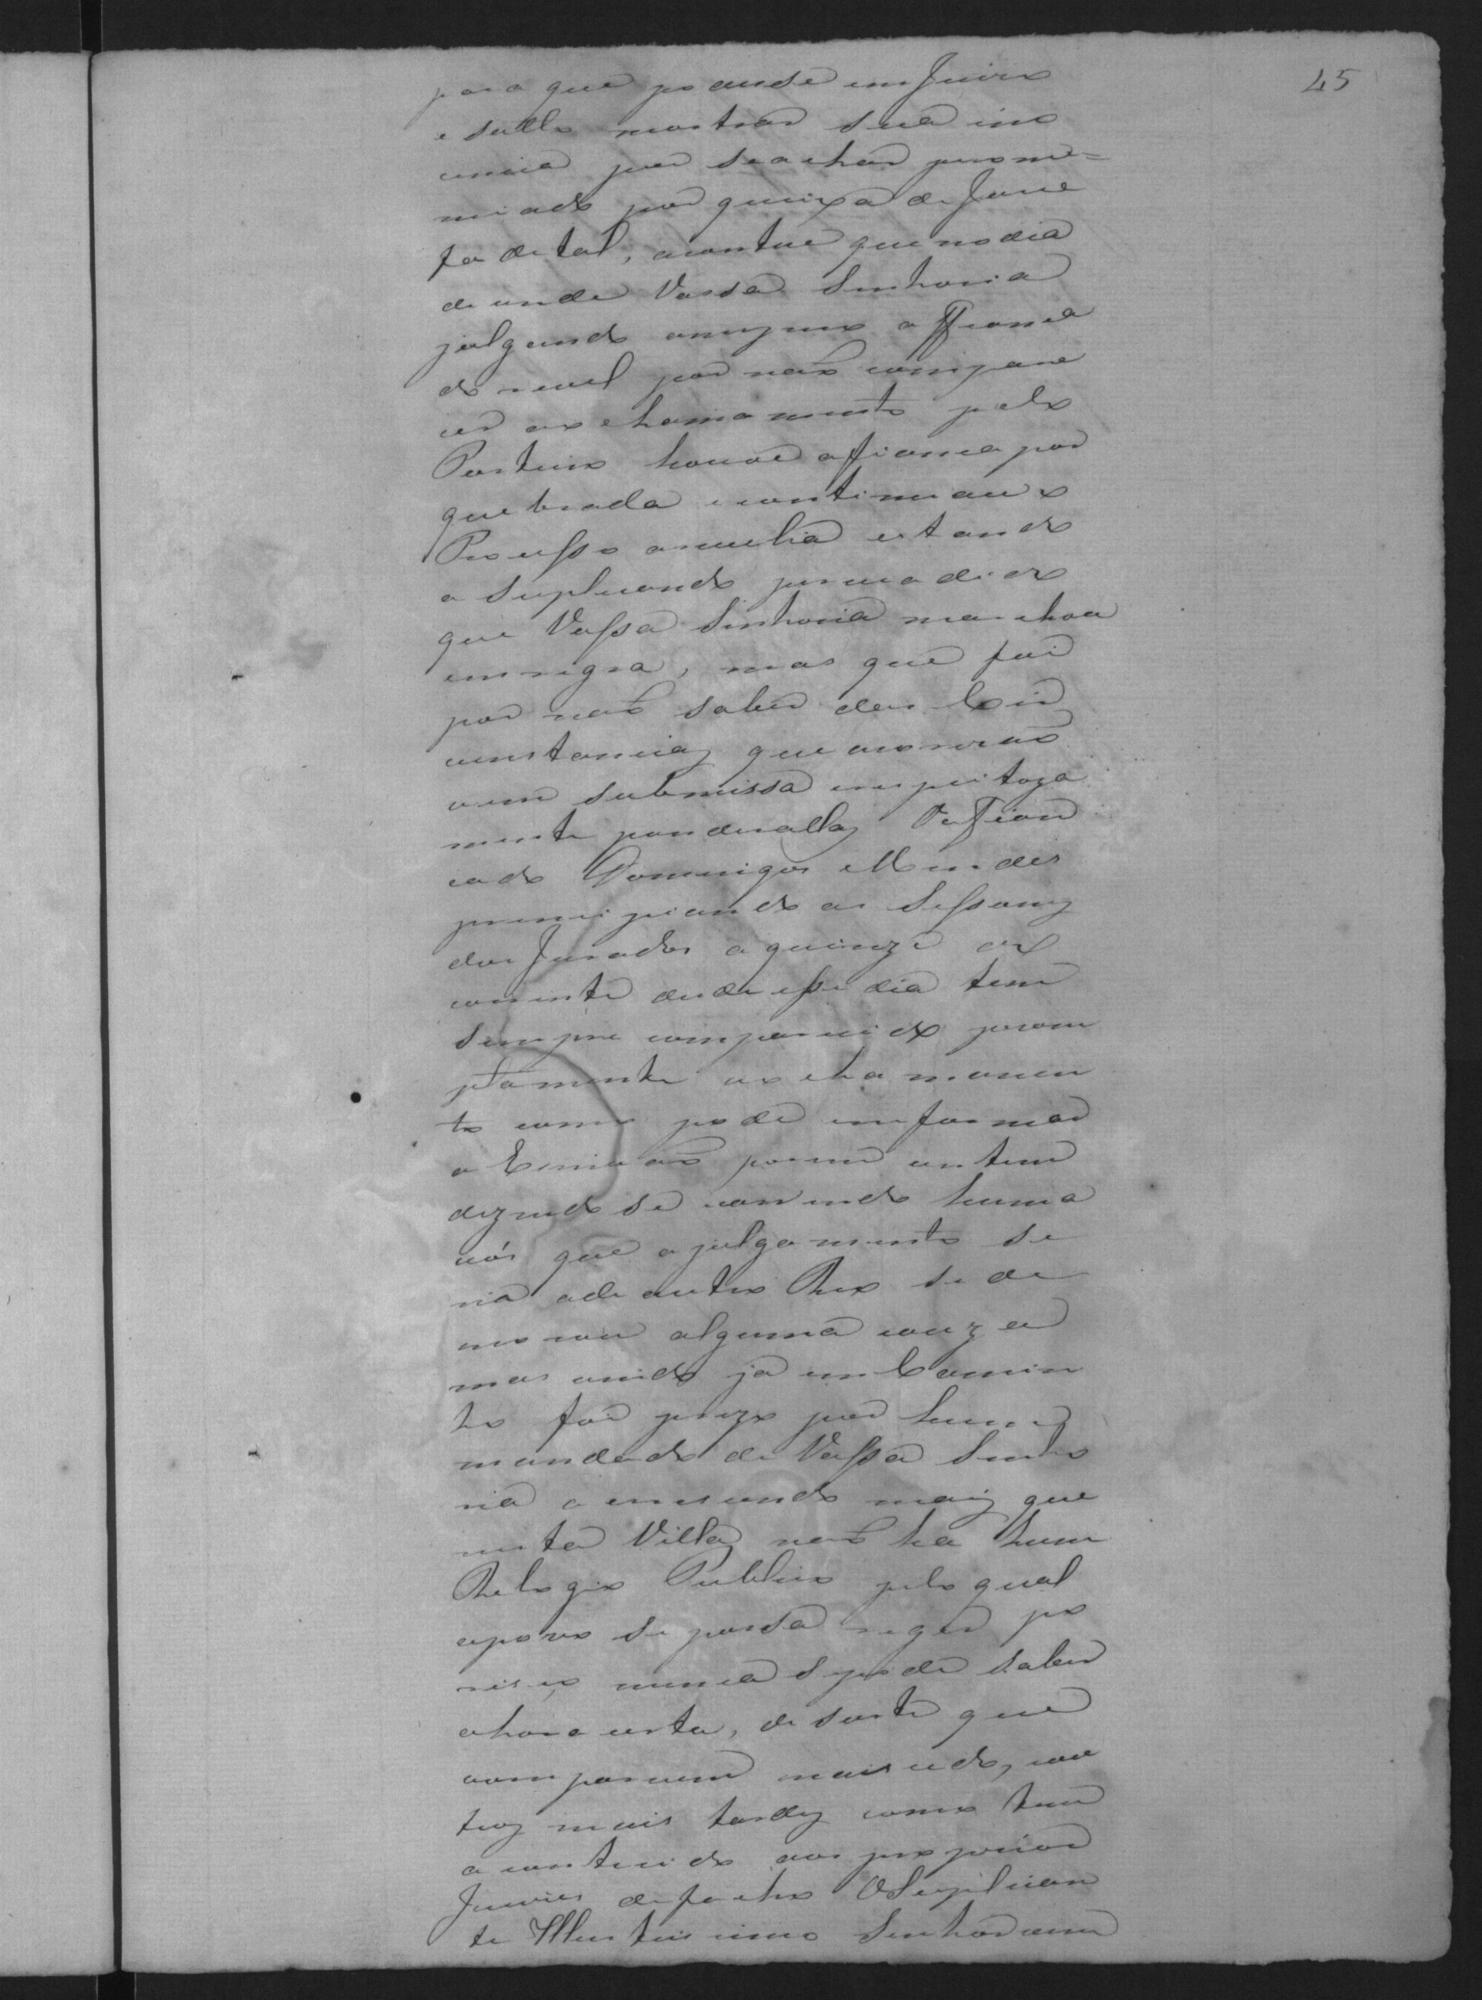 45
para que podesse em Juizo
e sollto mostrar sua ino
cencia por se achar pronun=
ciado por queixa de Jose
fa de tal, acontece que no dia
de onde Vossa Senhoria
julgando o affiança
do revel por naõ compare
cer ao chamamento pelo
Porteiro houve a fiança por
quebrada e continuou o
Processo a revelia estando
o Suplicando persuadido
que Vossa Senhoria marchou
em regra, mas que foi
por naõ saber das Cir
cunstancias que ocorreraõ
vem submissa e respeitoza
mente ponderallas O Afian
cado Domingos Mendes
principiando as Sessoens
dos Jurados a quinze do
corrente desde esse dia tem
sempre comparecido prom
ptamente ao chamamen
to como pode informar
o Escrivaõ porem ontem
dizendo se correndo huma
vós que o julgamento se
ria adeante o Reo se de
morou alguma couza
mas vindo já em Camin
ho foi prezo por hum
mandado de Vossa Senho
ria acrescendo mais que
nesta Villa naõ ha hum
Relogio Publico pelo qual
o povo se possa reger po
risso nunca se pode saber
a hora certa, de sorte que
comparecem mais cedo, e ou
tros mais tarde como tem
acontecido aos proprios
Juizes de facto O Suplican
te Illustrissimo Senhor vem